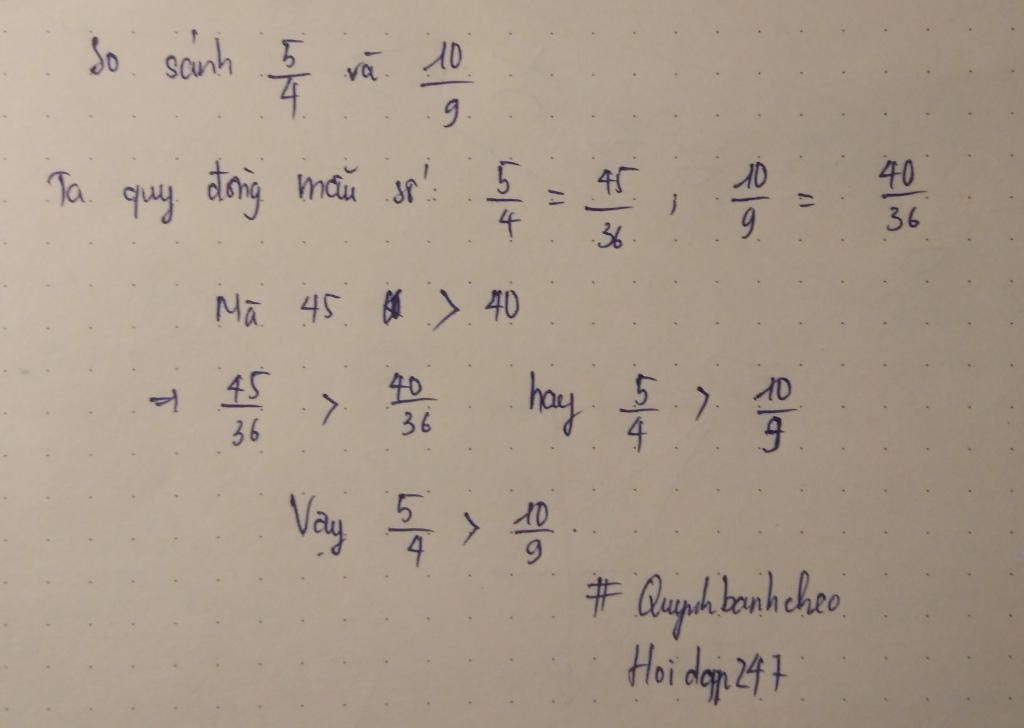 So sánh 5/4 và 10/9
Ta quy đồng mẫu số: 5/4 = 45/36 ; 10/9 = 40/36
Mà 45 > 40
⇒ 45/36 > 40/36 hay 5/4 > 10/9
Vậy 5/4 > 10/9.
# Quynhbanhcheo
Hoidap247